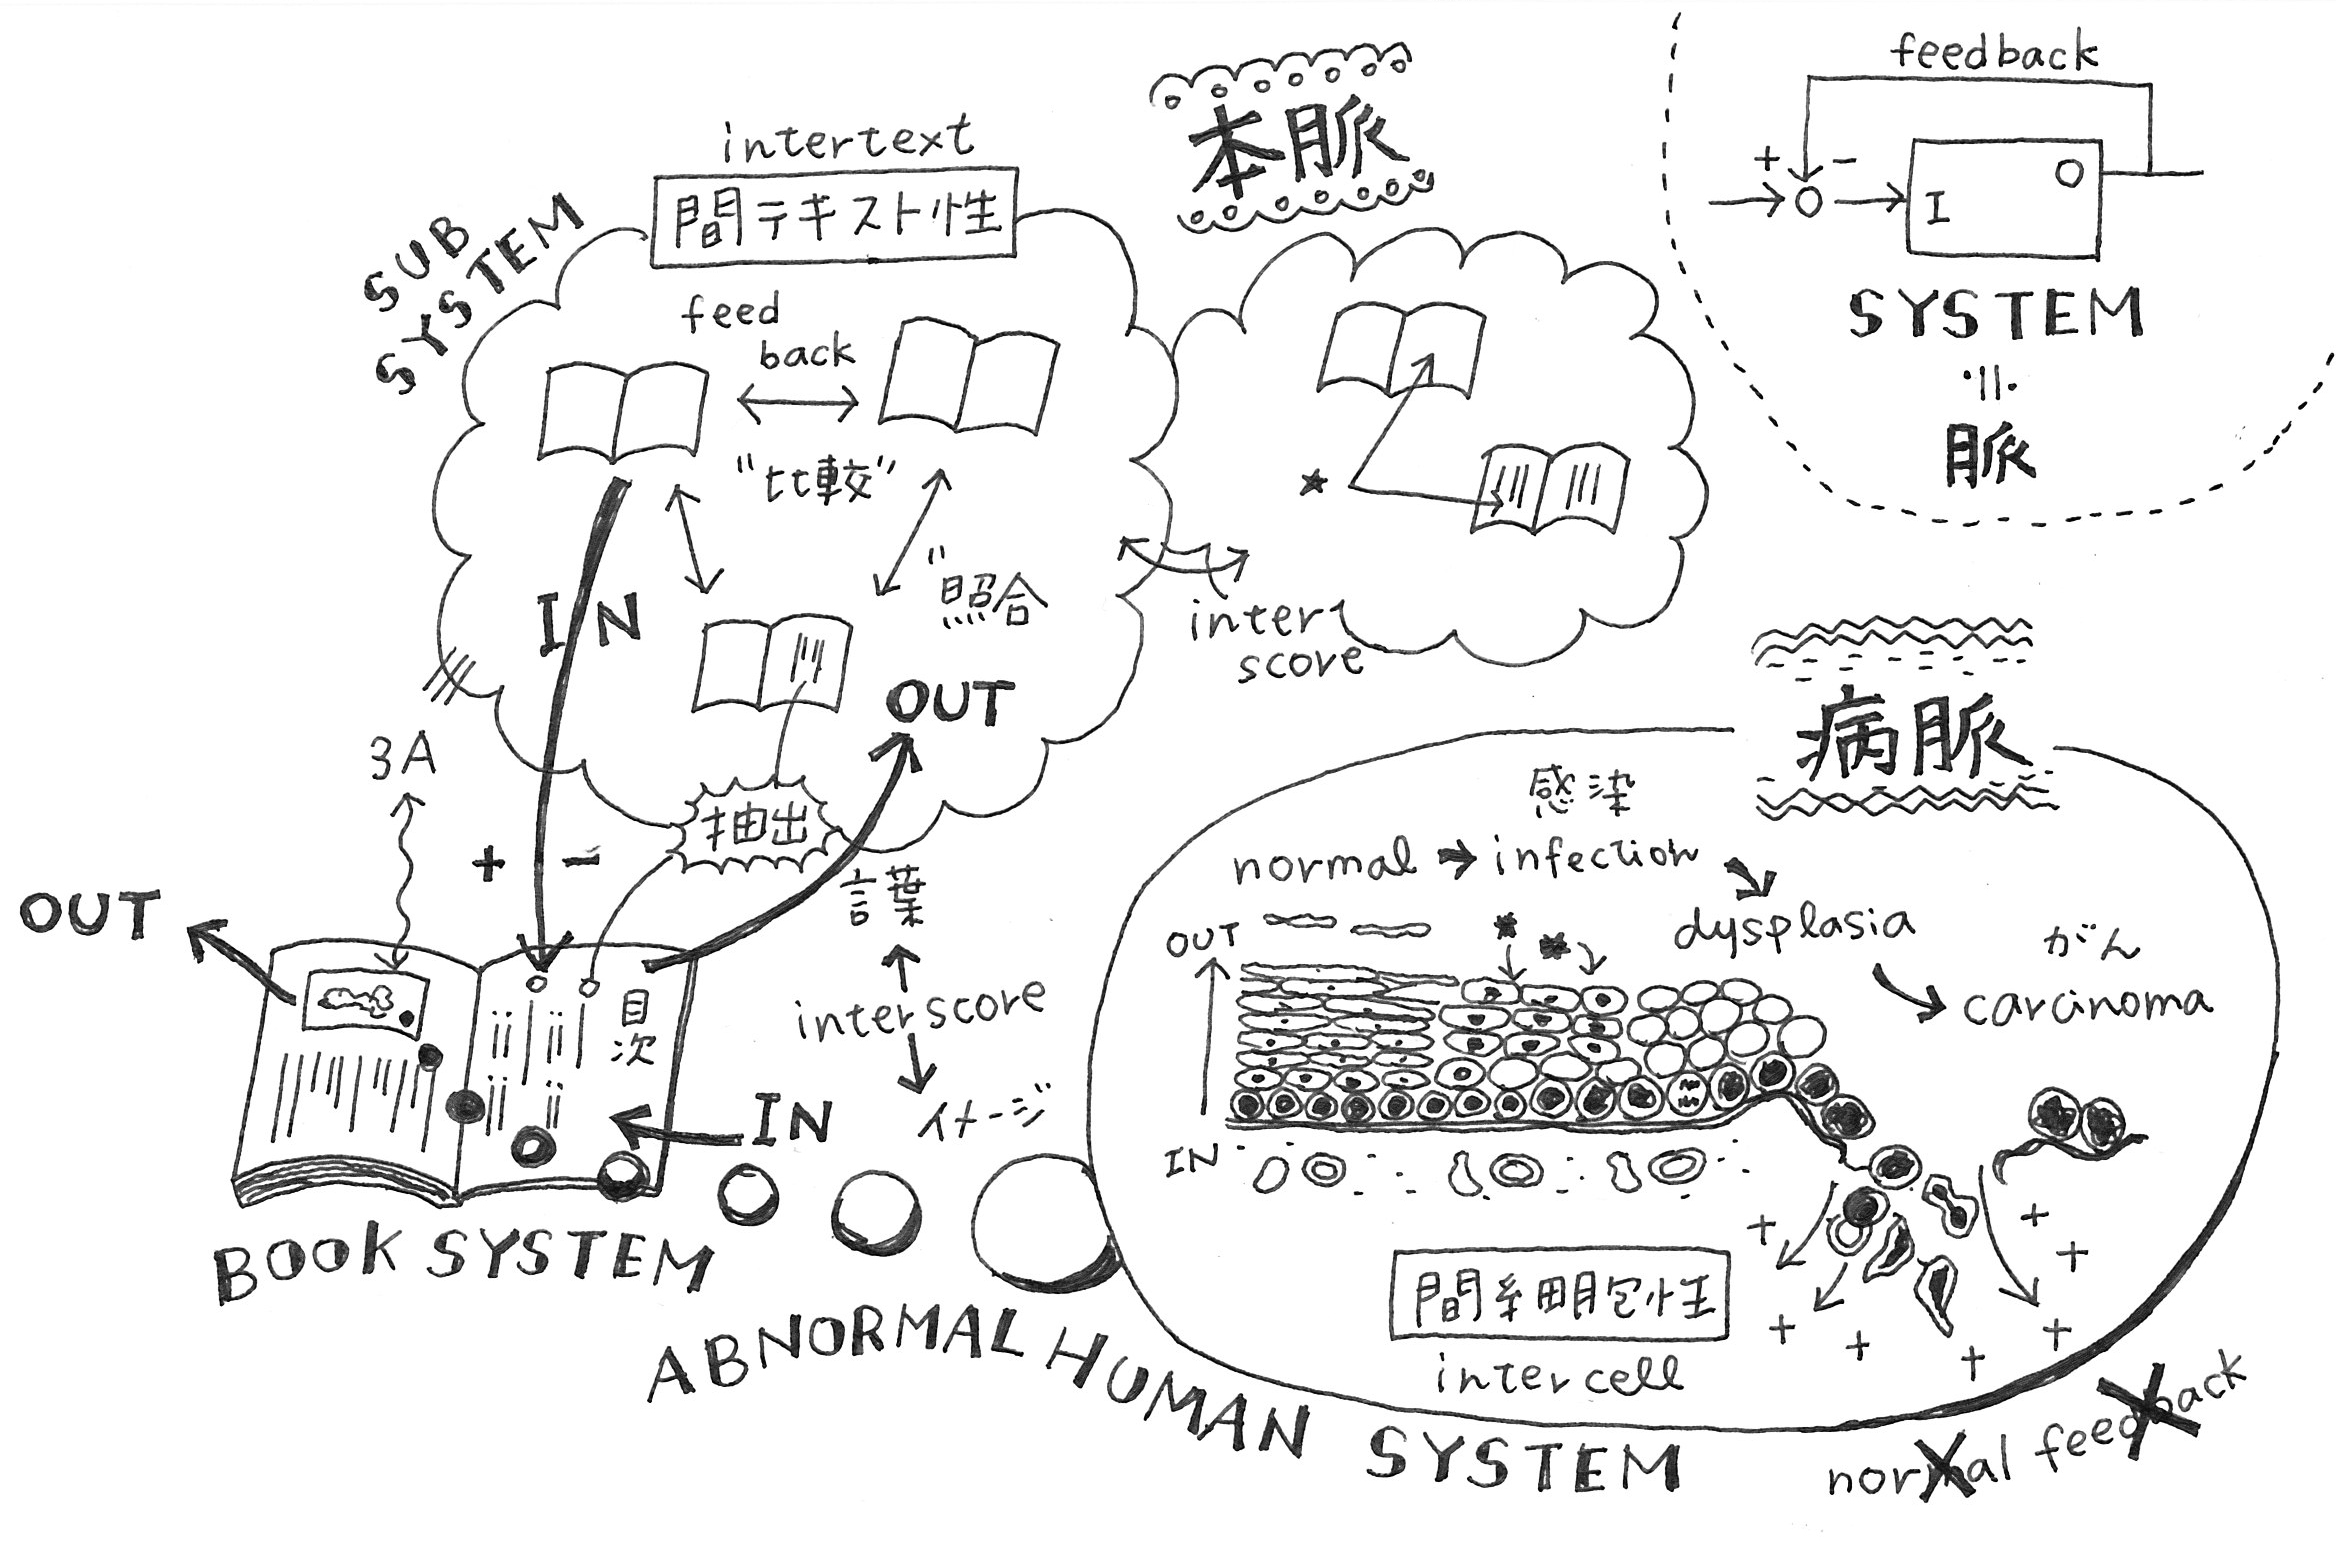 本脈
feedback
+ −
I
O
SYSTEM
≒
脈
intertext
間テキスト性
SUB
SYSTEM
feed
back
"比較"
"照合
IN
OUT
抽出
★
inter
score
3A
+ −
OUT
目次
IN
言葉
interscore
イメージ
BOOK SYSTEM
病脈
感染
normal → infection
dysplasia
がん
carcinoma
OUT
IN
+
+
+
+
+
+
+
間細胞性
intercell
ABNORMAL HUMAN SYSTEM
normal feedback